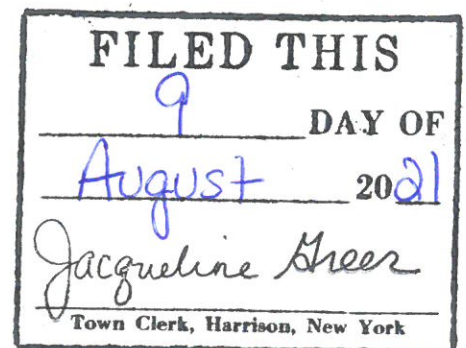 FILED THIS
9 DAY OF
August 2021
Jacqueline Greer
Town Clerk, Harrison, New York